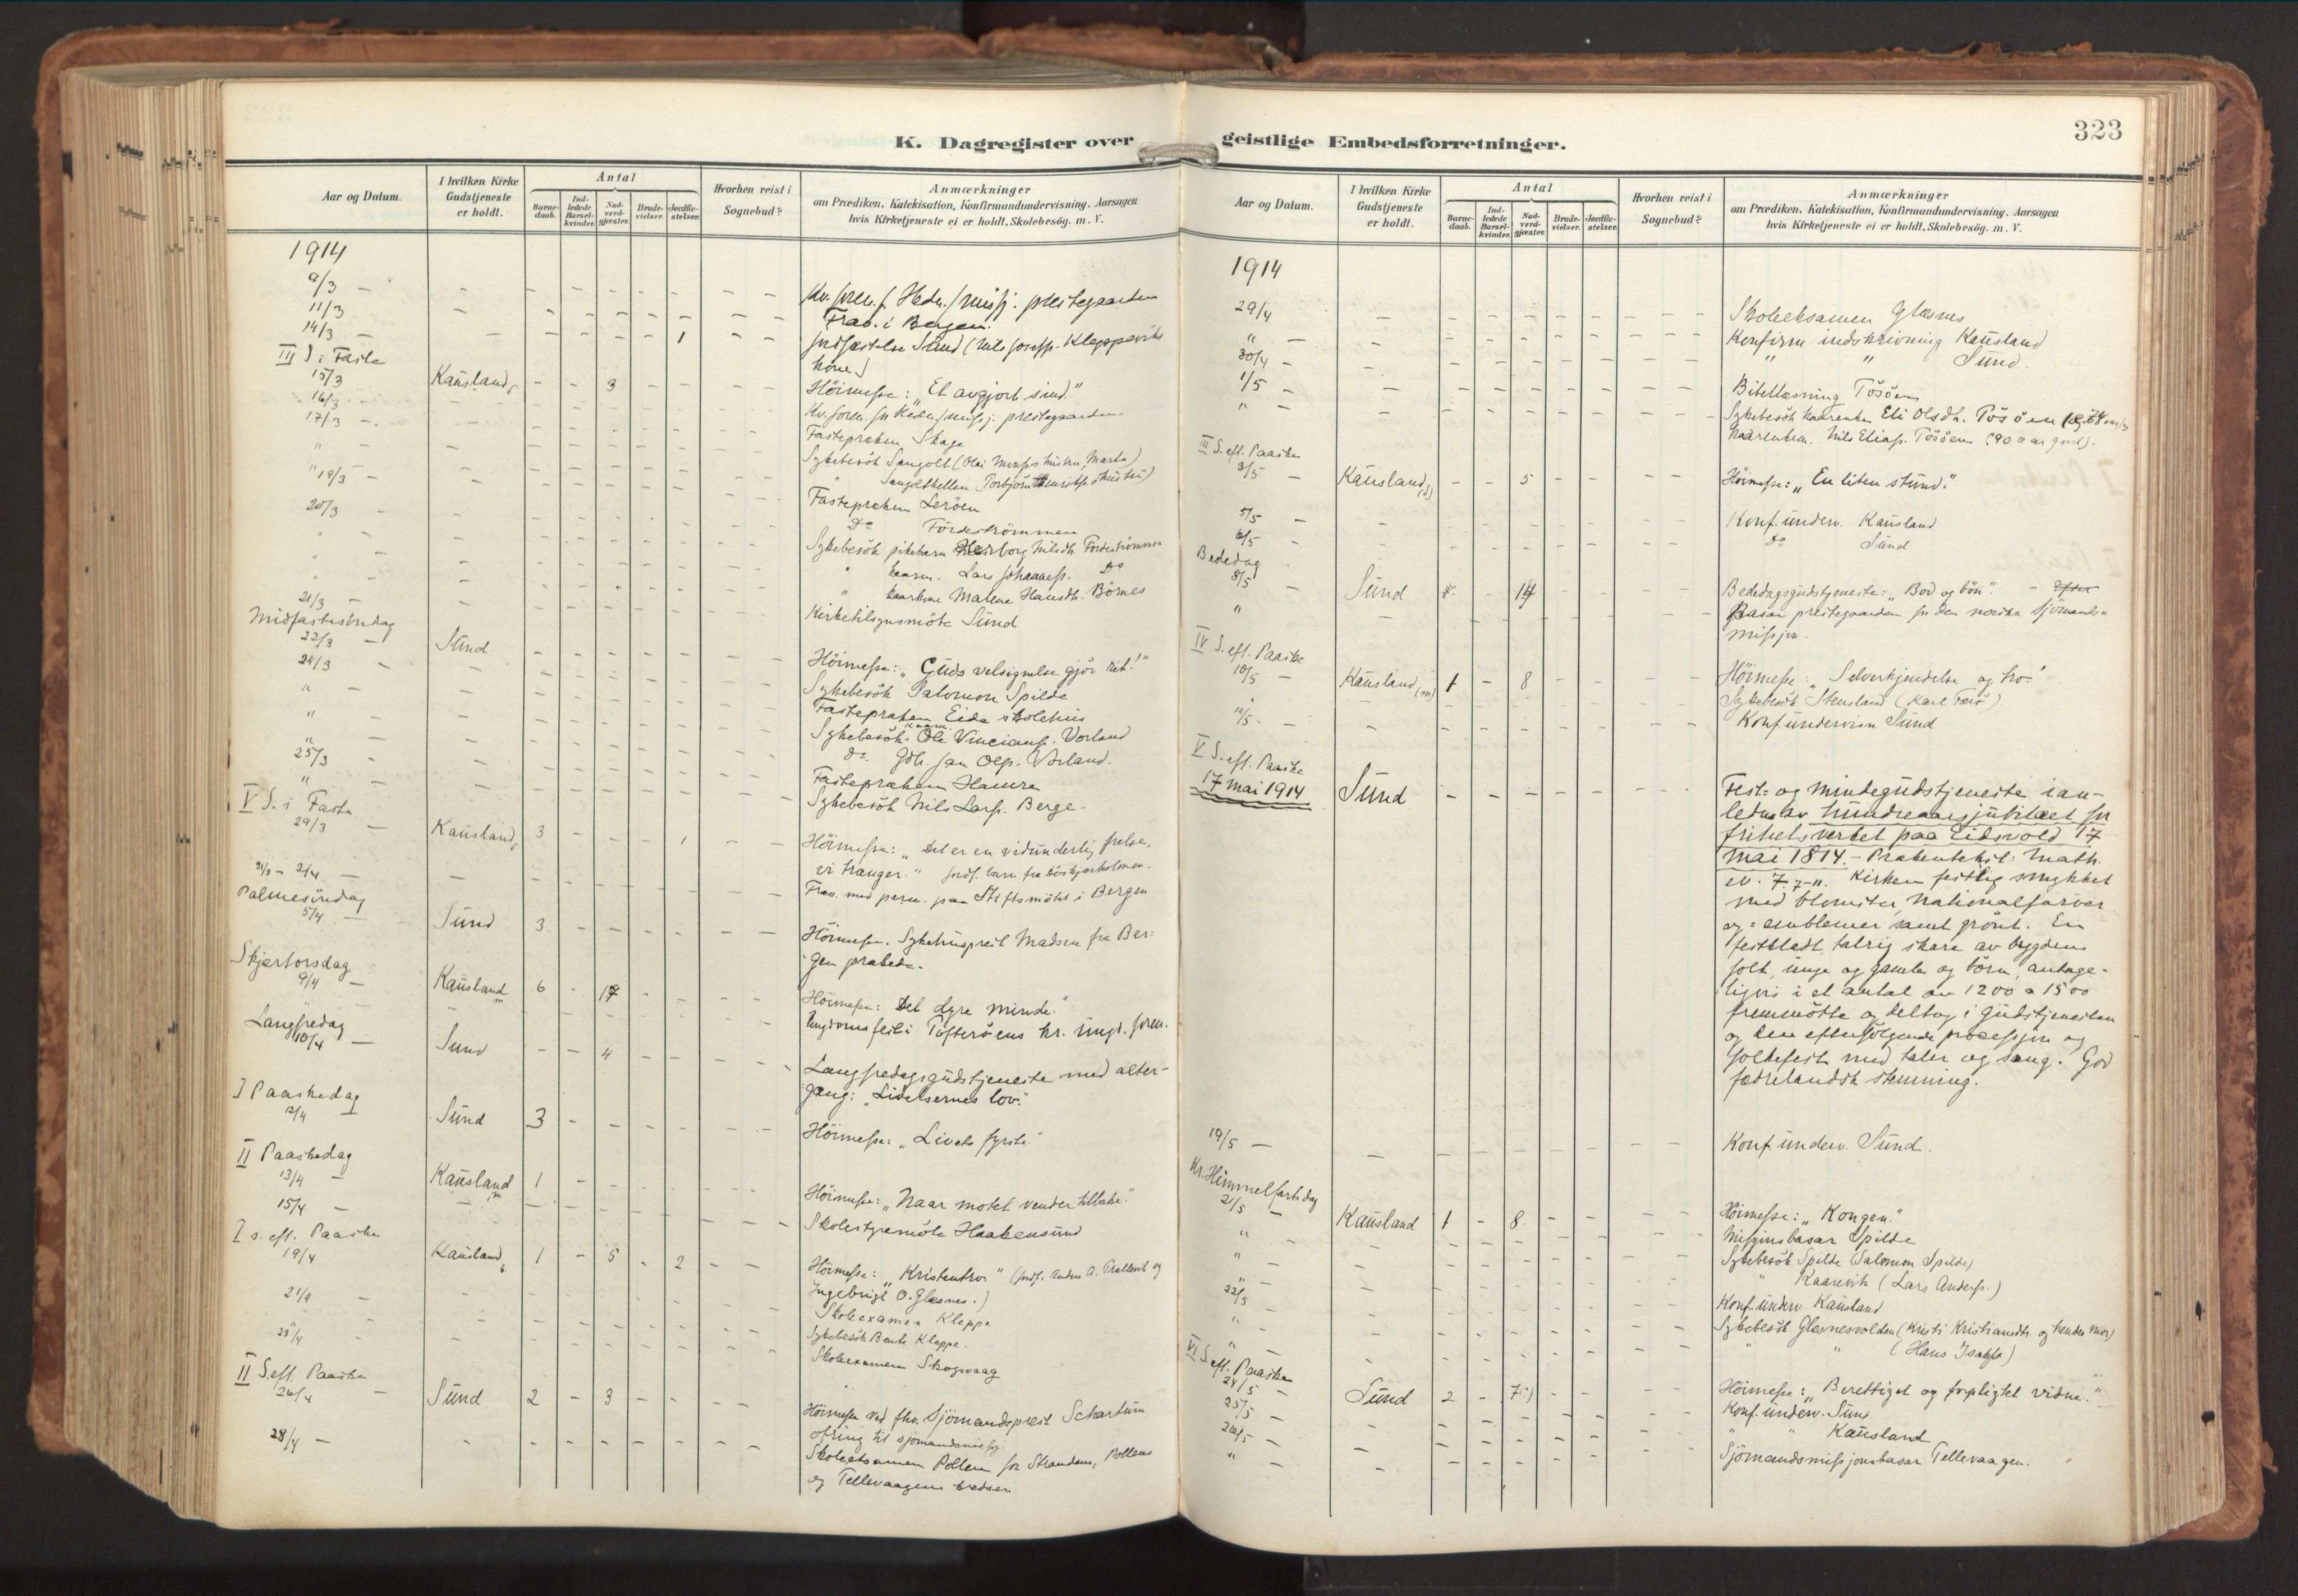 323
K. Dagregister over geistlige Embedsforretninger.
Aar og Datum.
I hvilken Kirke Gudstjeneste er holdt.
Antal
Barne-daab.
Ind-ledede Barsel-kvinder.
Nad-verd-gjæster.
Brude-vielser.
Jordfæ-stelser.
Hvorhen reist i Sognebud?
Anmærkninger
om Prædiken, Katekisation, Konfirmandundervisning, Aarsagen
hvis Kirketjeneste ei er holdt, Skolebesög. m. V.
1914
9/3 - Kv. foren. f. Hedn. missj. prestegaarden
11/3 Frav. i Bergen.
14/3 - 1 Jordfæstelse Sund (Nils Josefs. Kleppeviks
kone)
III S. i Faste
15/3 Kausland - - 3 Höimesse: "Et avgjort sind."
16/3 Kv. foren. for Hedn. missj. prestegaarden
17/3 - Fastepræken Skage
" Sykebesök Sangolt (Olai Monss. hustru Marta)
" Sangoltkellen (Torbjörn hustru)
19/3 - Fastepræken Leröen
20/3 - Do Fördeströmmen
" Sykebesök pikebarn Herborg Nilsdt. Fördeströmmen
" " kaarm. Lars Johanness. Do
" " kaarkone Malene Hansdt. Börnes
21/3 - Kirketilsynsmöte Sund
Midfastesöndag
22/3 - Sund Höimesse: "Guds velsignelse gjör rik!"
24/3 - Sykebesök Salomon Spilde
" Fastepræken Eide skolehus
" Sykebesök kaarm. Ole Vincians. Vorland
" Do. Gdb. Jan Ols. Vorland.
25/3 - Fastepræken Hamre
" Sykebesök Nils Larss. Berge.
V S. i Faste
29/3 - Kausland 3 - - - 1 Höimesse: "Det er en vidunderlig frelse,
vi trænger."
31/3 - 2/4 - Frav. med perm. paa Stiftsmötet i Bergen
Palmesöndag
5/4 - Sund 3 Höimesse. Sykehusprest Madsen fra Ber-
gen præket.
Skjærtorsdag
9/4 - Kausland 6 - 17 Höimesse: "Det dyre minde."
Ungdomsfest i Tofteröens kr. ungd. foren.
Langfredag
10/4 - Sund - - 4 Langfredagsgudstjeneste med alter-
gang: "Lidelsernes lov."
I Paaskedag
12/4 - Sund 3 Höimesse: "Livets fyrste."
II Paaskedag
13/4 - Kausland 1 Höimesse: "Naar motet vender tilbake."
15/4 - Skolestyremöte Haakensund
I s. eft. Paaske
19/4 Kausland 1 - 5 - 2 Höimesse: "Kristentro" (Jordf. Anders A. Trellevik og
Ingebrigt O. Glesnes.)
21/4 - Skoleexamen Kleppe
" Sykebesök Berte Kleppe.
23/4 - Skoleexamen Skogsvaag
II S. eft. Paaske
26/4 - Sund 2 - 3 - - Höimesse ved fhv. Sjömandsprest Schartum
ofring til sjömandsmissj.
28/4 - Skoleeksamen Pollen for Strandens, Pollens
og Tellevaagens kredser.
1914
29/4 Skoleeksamen Glesnes
" - Konfirm. indskrivning Kausland
30/4 - " " Sund.
1/5 - Bibellæsning Tösöen
" - Sykebesök kaarenken Eli Olsdt. Tösöen
kaarenkem. Nils Eliass. Tösöen (90 aar gml).
III S. eft. Paaske
3/5 - Kausland - - 5 Höimesse: "En liten stund."
5/5 - Konf. underv. Kausland
6/5 - Do Sund
Bededag
8/5 - Sund - 14 Bededagsgudstjeneste: "Bod og bön".
" Basar prestegaarden for den norske sjömands-
missjon.
IV S. eft. Paaske
10/5 - Kausland (m) 1 - 8 Höimesse: "Selverkjendelse og tro."
" Sykebesök Stensland (Karl
12/5 - Konf. undervisn. Sund
V S. eft. Paaske
17 Mai 1914 Sund Fest- og mindegudstjeneste i an-
ledn. av hundreaarsjubilæet for
frihetsverket paa Eidsvold 17
Mai 1814. - Præketekst: Math.
ev. 7 7-11. Kirken festlig smykket
med blomster, nationalfarver
og - emblemer samt grönt. En
festkladt talrig skare av bygdens
folk, unge og gamle og börn, antage-
ligvis i et antal av 1200 a 1500
fremmötte og deltog i gudstjenesten
og den efterfölgende procession og
folkefest med taler og sang. God
fædrelandsk stemning.
19/5 - Konf. underv. Sund.
Kr. Himmelfartsdag
21/5 - Kausland 1 - 8 Höimesse: "Kongen."
" Missionsbasar Spilde
" Sykebesök Spilde (Salomon Spilde)
" " Kaarevik (Lars Anderss.)
22/5 - Konf. underv. Kausland
" - Sykebesök Glesnesvolden (Kristi Kristiansdt. og hendes mor)
" - " " (Hans Isaks.)
VI S. eft. Paaske
24/5 - Sund 2 - 7 Höimesse: "Berettiget og forpligtet vidne."
25/5 - Konf. underv. Sund
26/5 - " " Kausland
" - Sjömandsmissjonsbasar Tellevaagen.